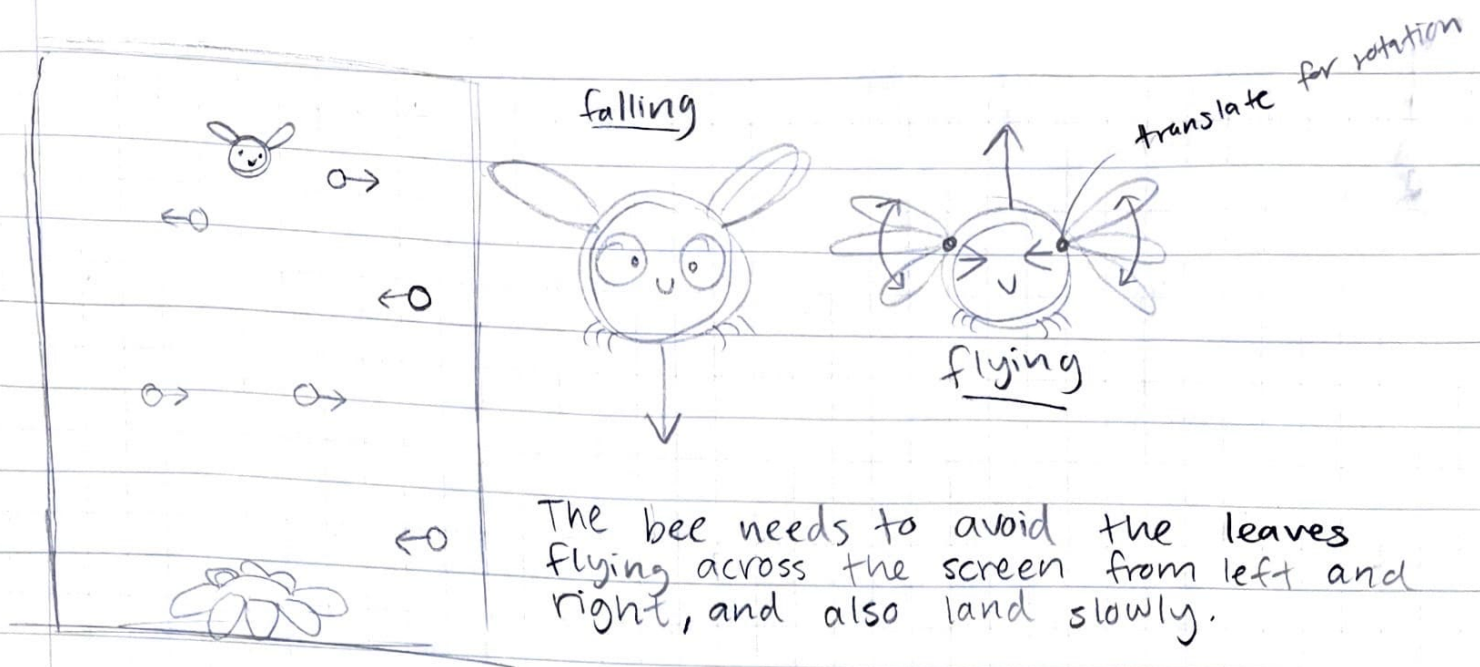 falling
translate for rotation
flying
The bee needs to avoid the leaves
flying across the screen from left and
right, and also land slowly.